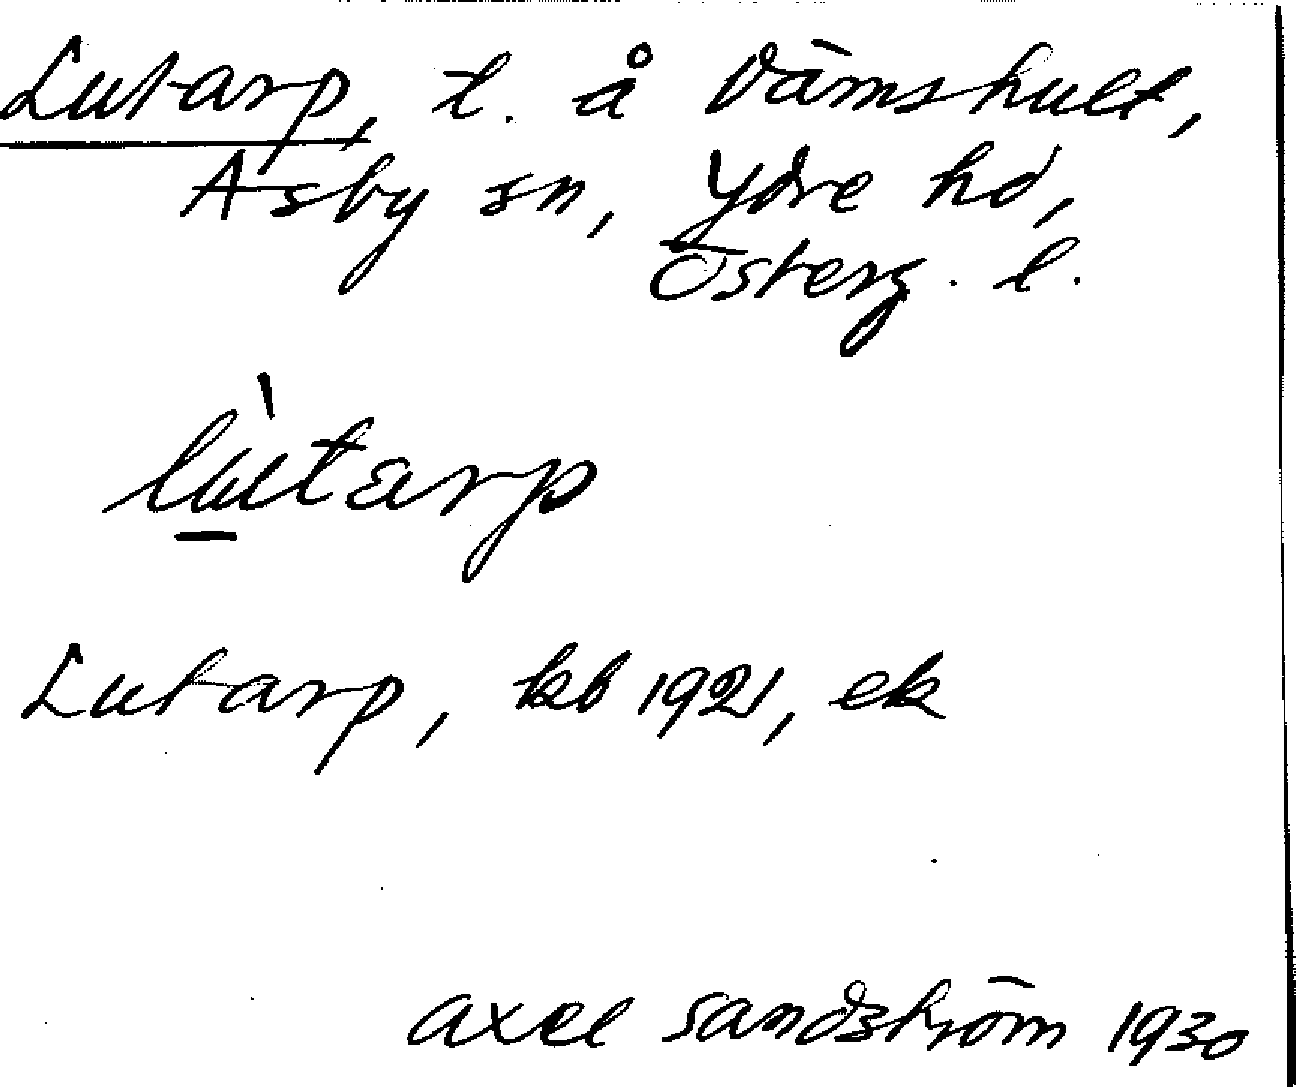 Lutarp, t. å Vämshult,
Asby sn, Ydre hd,
Österg. l.
lùtarp
Lutarp, kb 1921, ek
Axel Sandström 1930